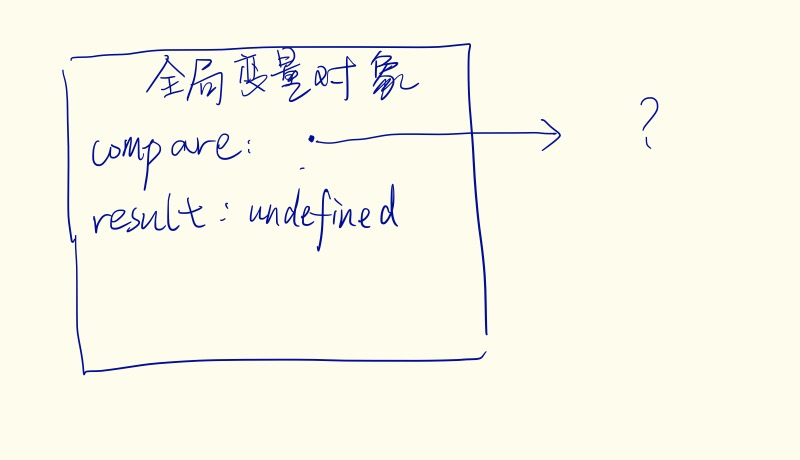 全局变量对象
compare: ?
result: undefined